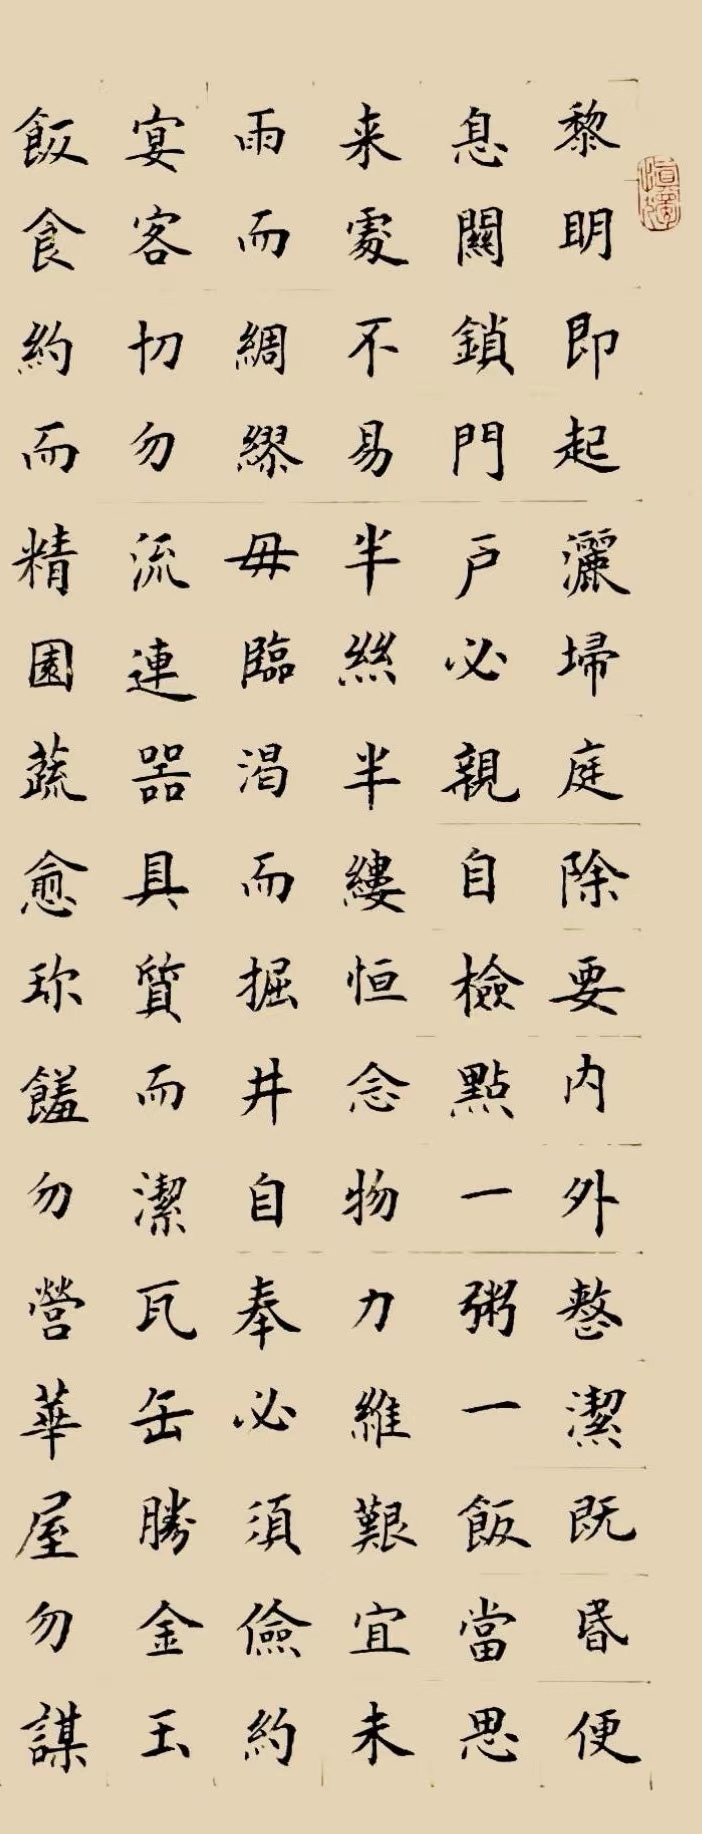 黎明即起灑埽庭除要内外整潔既昏便
息關鎖門戶必親自檢點一粥一飯當思
来處不易半絲半縷恒念物力維艱宜未
雨而綢繆毋臨渴而掘井自奉必須儉約
宴客切勿流連器具質而潔瓦缶勝金玉
飯食約而精園蔬愈珍饈勿營華屋勿謀